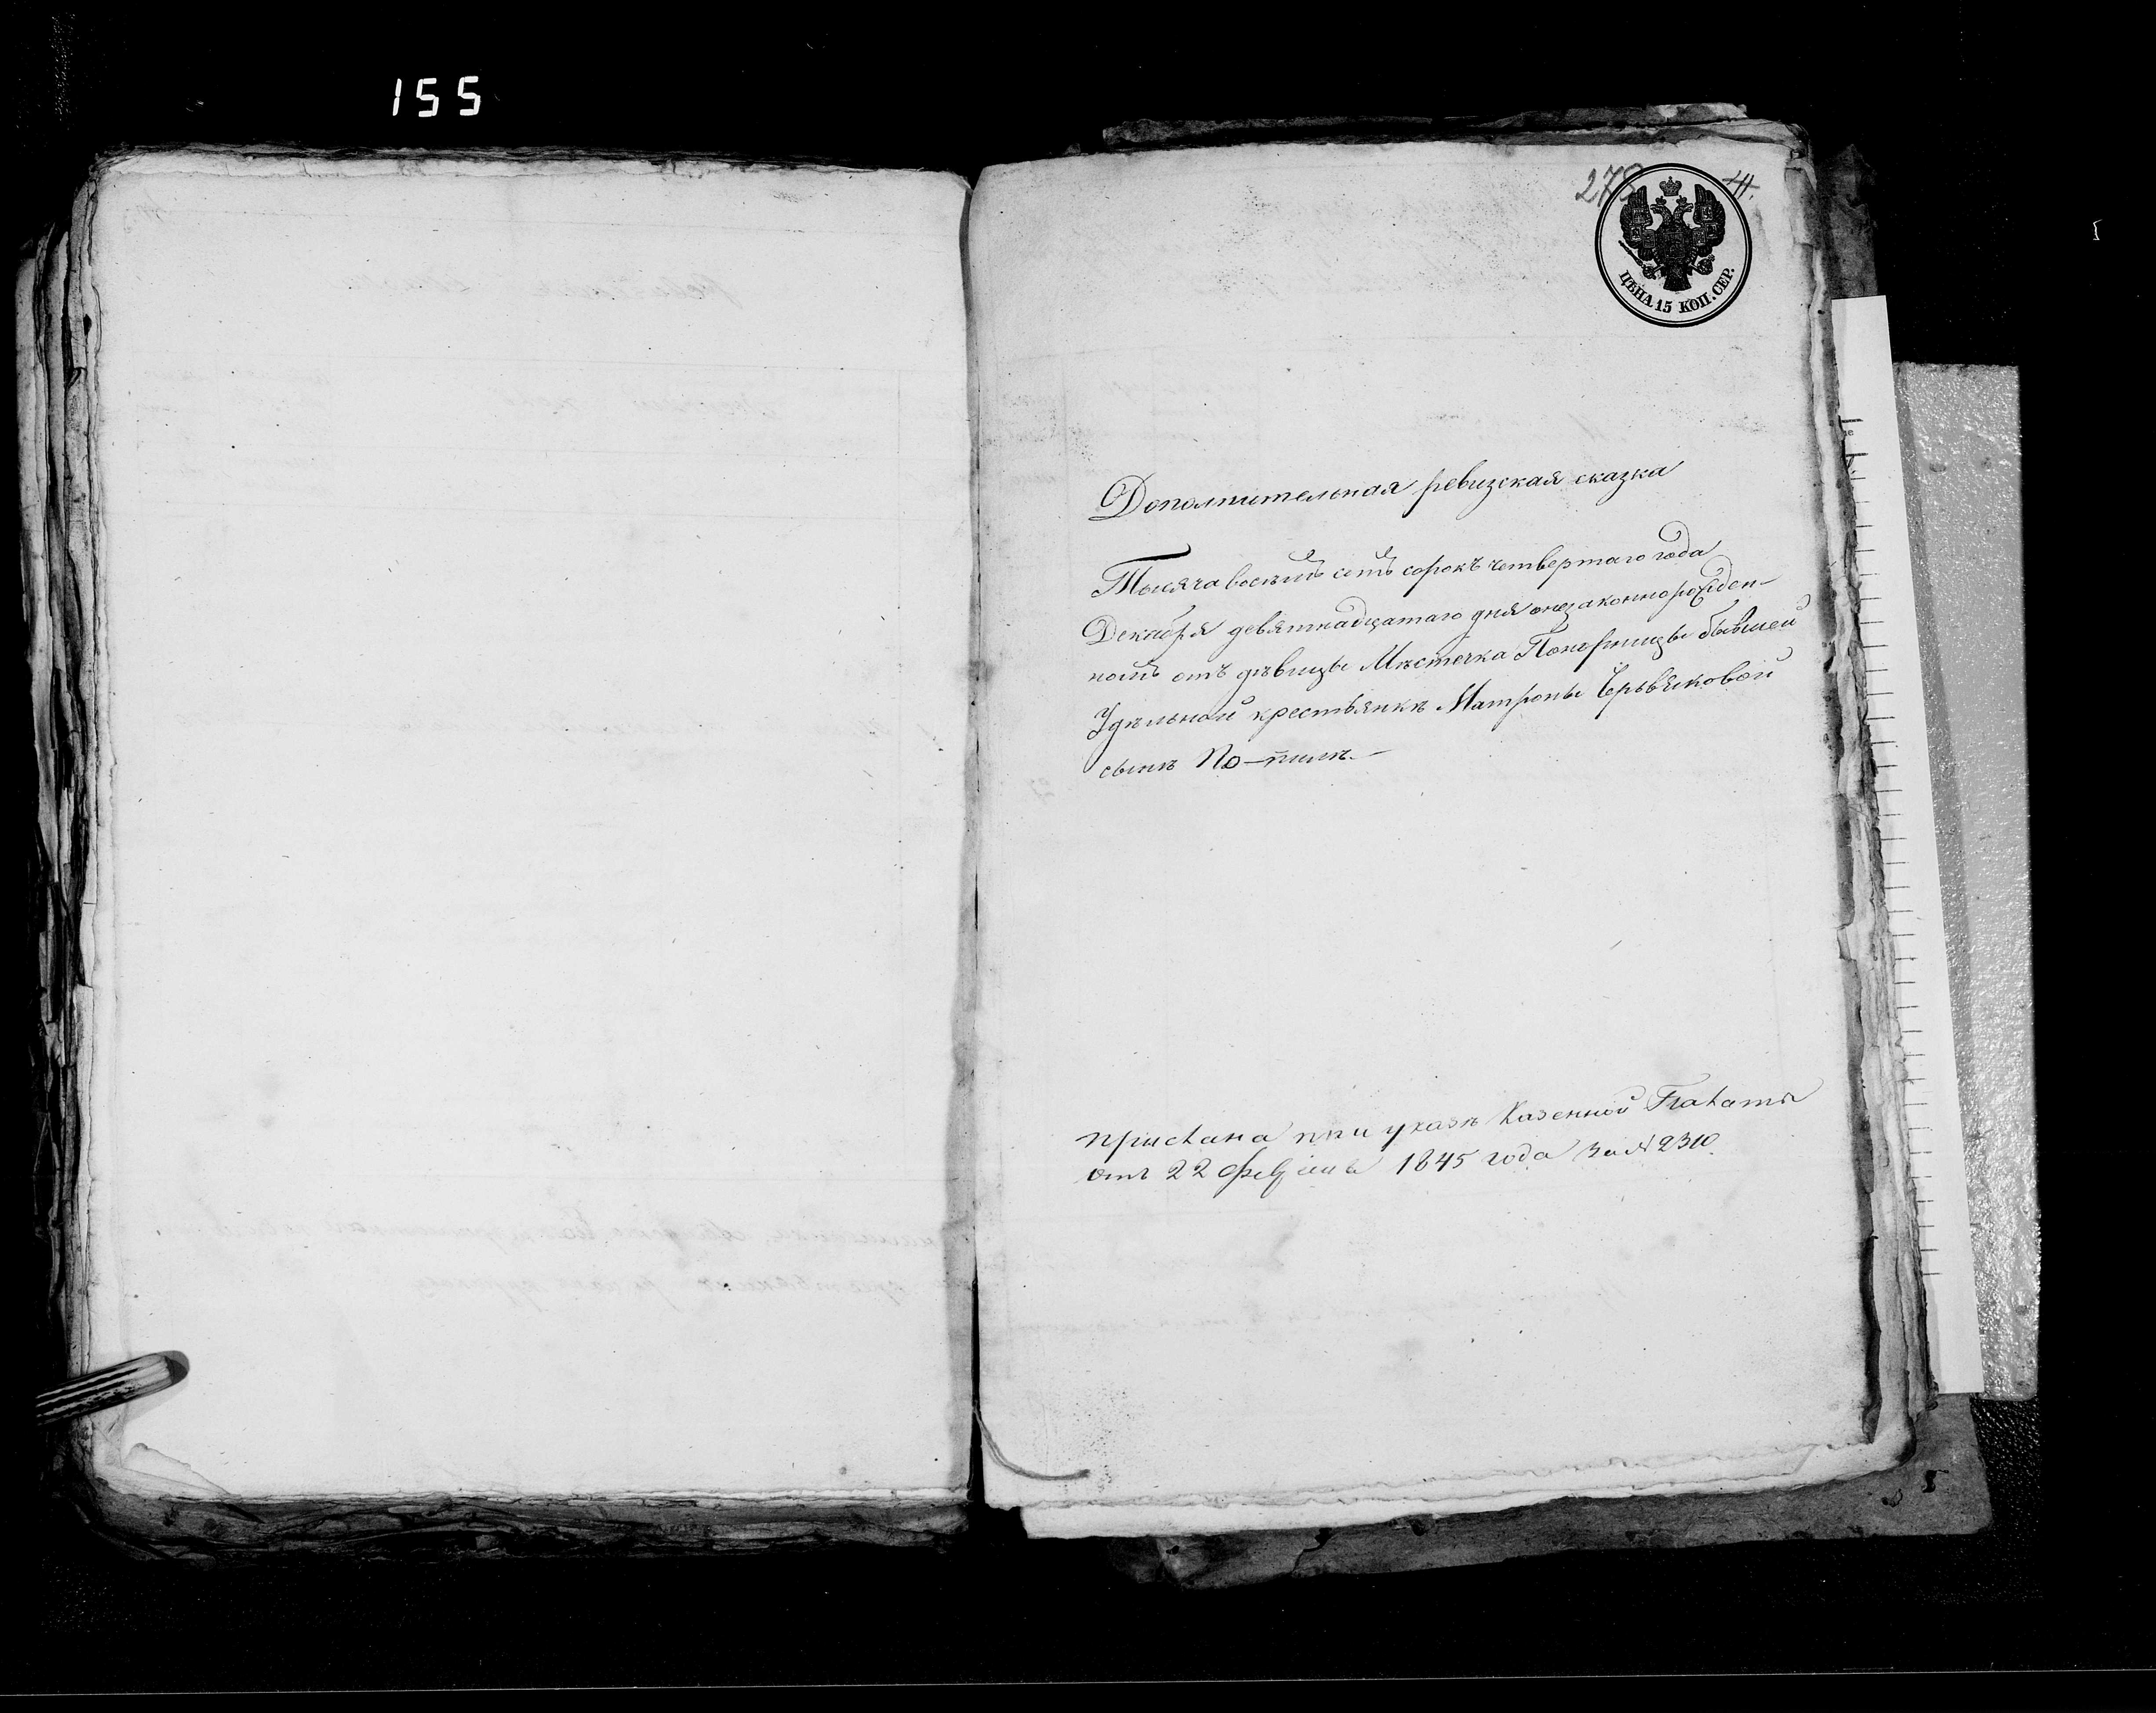 155
278
ЦѢНА 15 КОП. СЕР.
Дополнительная ревизская сказка
Тысяча восемь сотъ сорокъ четвертаго года
Декабря девятнадцатаго дня онезаконнорожден-
номъ отъ дѣвицы Мѣстечка Понорницы бывшей
Удѣльной крестьянкѣ Матроны Черьвяковой
сынѣ
прислана при указѣ Казенной Палаты
отъ 22 февраля 1845 года за № 2310.